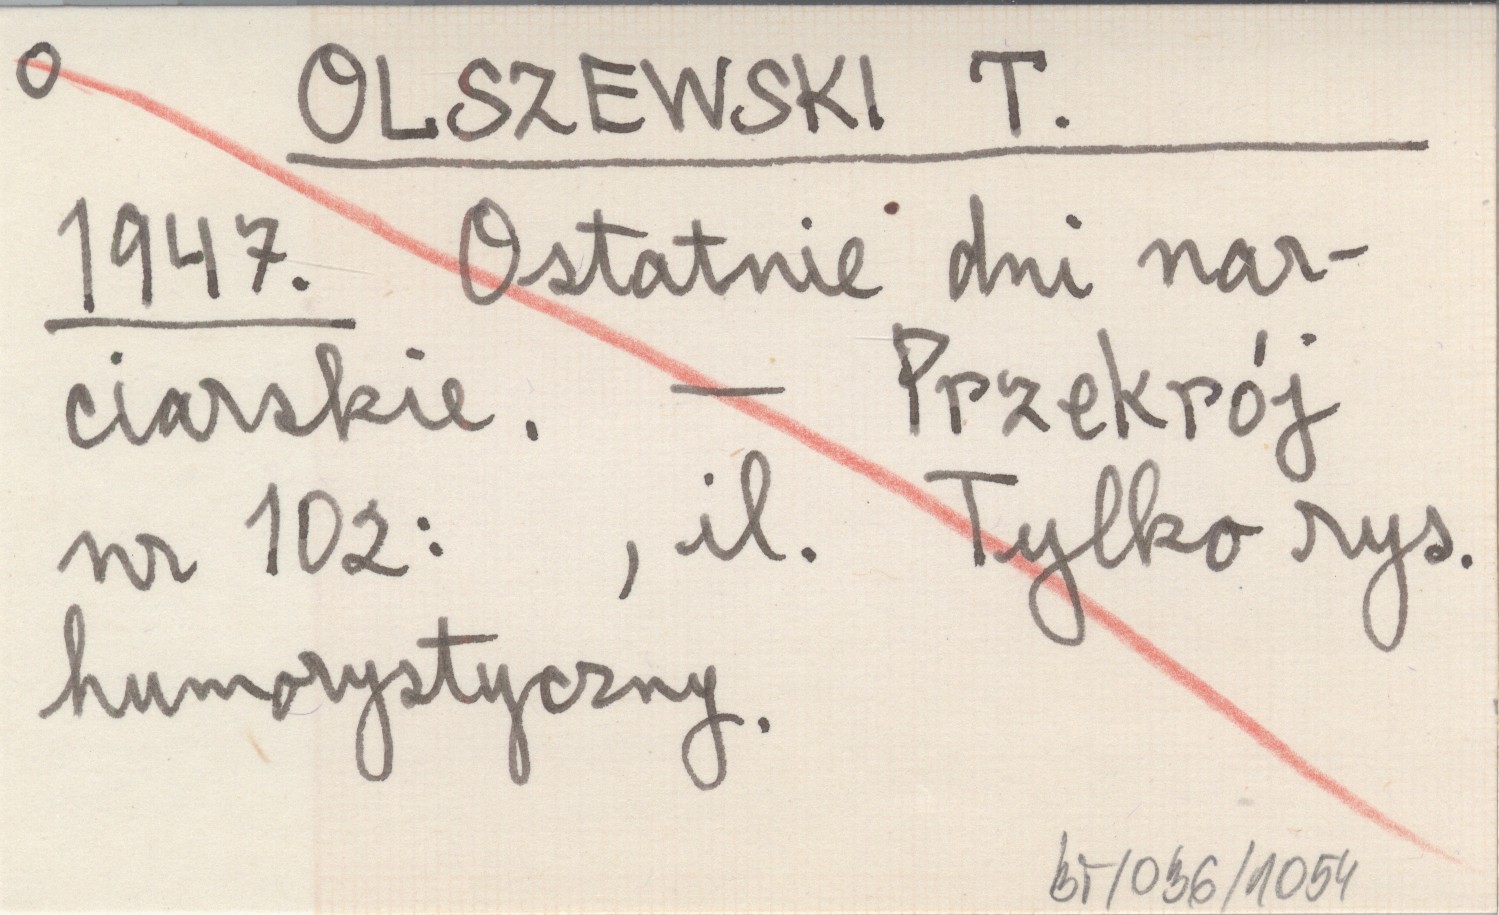 O OLSZEWSKI T.
1947. Ostatnie dni nar-
ciarskie. — Przekrój
nr 102: , il. Tylko rys.
humorystyczny.
/036/1054